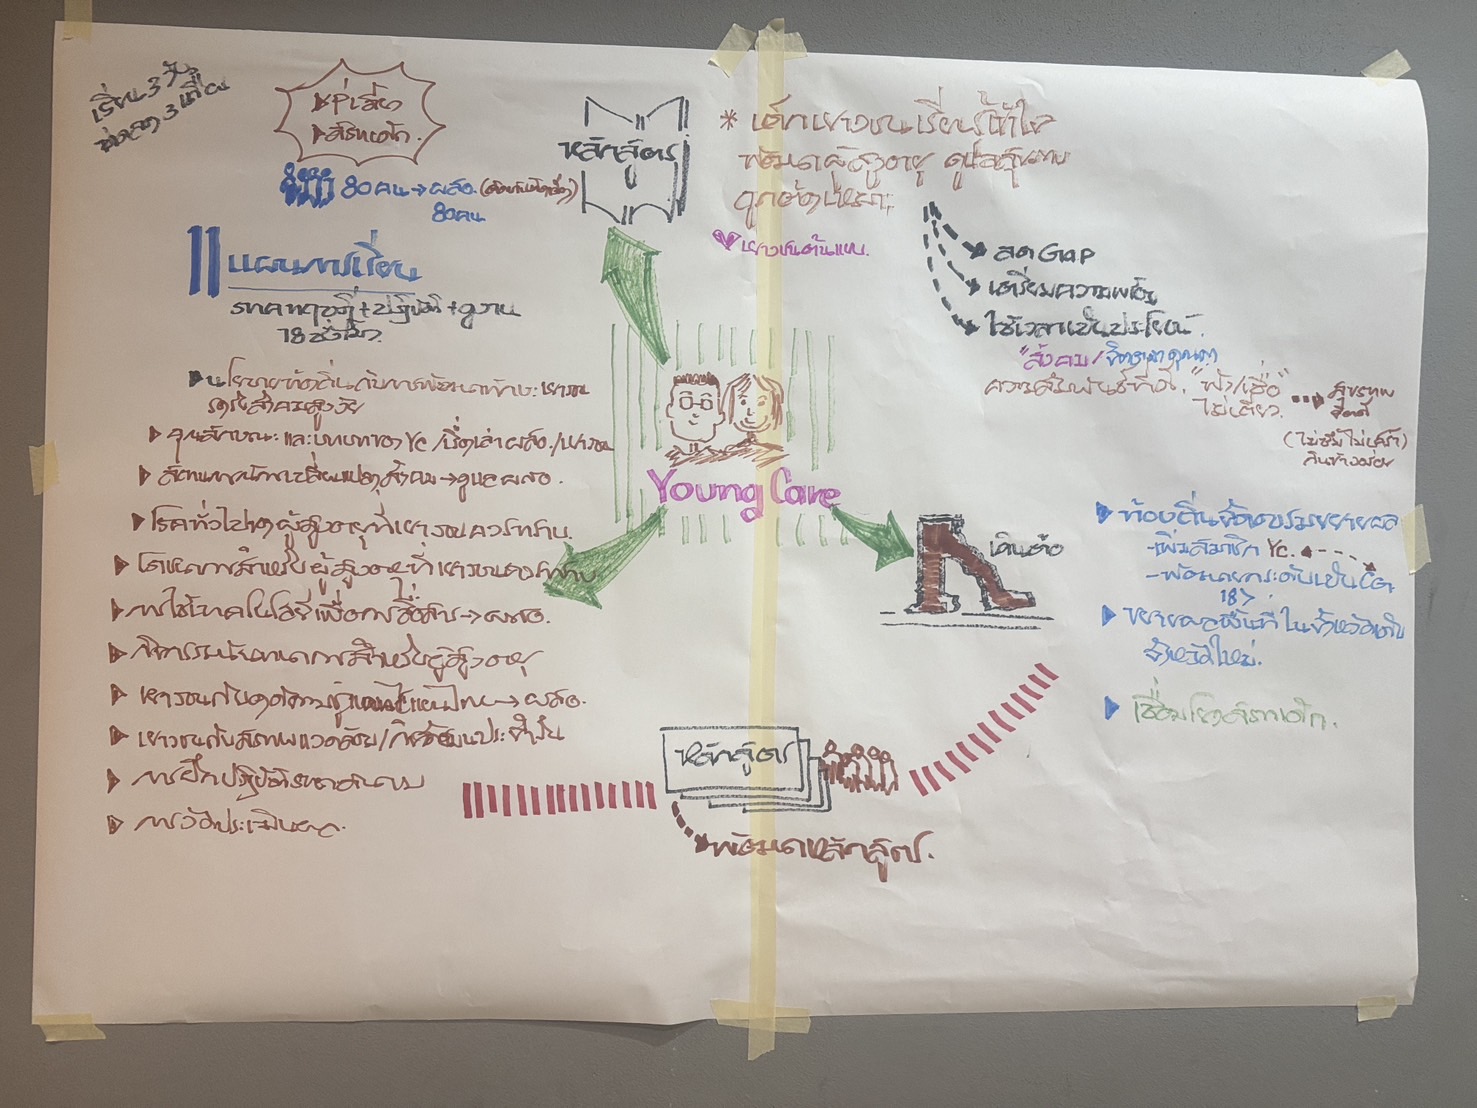 เรียน 3 วัน
ทดลอง 3 เดือน
หลักสูตร
80 คน → ผสอ.
80 คน
* เด็กเยาวชน เรียนรู้เข้าใจ
พัฒนาผู้สูงอายุ ดูแลสุขภาพ
เยาวชนต้นแบบ.
ลด GaP
เตรียมความพร้อม
ใช้เวลาเป็นประโยชน์.
"สั้งคม/
ความสัมพันธ์ที่ดี. "ฟัง/เสื่อ"
ไม่เดียว.
สุขภาพ
จิตดี
(ไม่ซึม ไม่เศร้า)
แผนการเรียน
ภาคทฤษฎี + ปฏิบัติ + ดูงาน
18 ชั่วโมง
นโยบายท้องถิ่นกับการพัฒนาทักษะเยาวชน
รองรับสังคมสูงวัย
คุณลักษณะและบทบาทของ Yc /เรื่องเล่า ผสอ./เยาวชน
สถานการณ์การเปลี่ยนแปลงสังคม → ดูแล ผสอ.
โรคทั่วไปของผู้สูงอายุที่เยาวชนควรทราบ.
โภชนาการสำหรับผู้สูงอายุที่เยาวชนควรทราบ
การใช้เทคโนโลยีเพื่อการสื่อสาร → ผสอ.
กิจกรรมนันทนาการสำหรับผู้สูงอายุ
เยาวชนกับสภาพแวดล้อม/กิจวัตรประจำวัน
การฝึกปฏิบัติ
การวัดประเมินผล.
Young Care
เดินต่อ
ท้องถิ่นจัดอบรมขยายผล
-เพิ่มสมาชิก Yc.
-พัฒนายกระดับเป็น
18>
ขยายผลพื้นที่ในจังหวัดเดิม
จังหวัดใหม่.
เชื่อมโยงสภาเด็ก.
หลักสูตร
พัฒนาหลักสูตร.